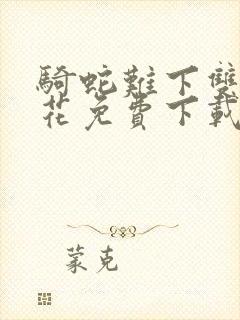 騎蛇難下雙
花免費下載
蒙克